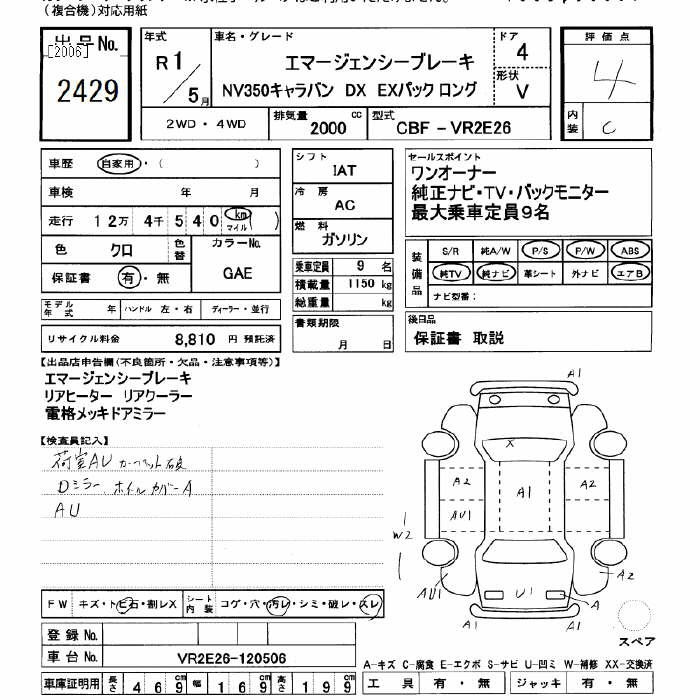 (複合機)対応用紙
出品No.
[2006]
2429
年式
R1/5月
車名・グレード
エマージェンシーブレーキ
NV350キャラバン DX EXパック ロング
ドア
4
形状
V
評価点
4
内装
C
2WD・4WD
排気量
2000 cc
型式
CBF-VR2E26
車歴 自家用・( )
車検 年 月
走行 12万 4千 540 km マイル ( )
色 クロ
色替
カラーNo.
GAE
保証書 有・無
モデル年式 年
ハンドル 左・右
ディーラー・並行
リサイクル料金 8,810 円 預託済
シフト
IAT
冷房
AC
燃料
ガソリン
乗車定員 9 名
積載量 1150 kg
総重量 kg
書類期限
月 日
セールスポイント
ワンオーナー
純正ナビ・TV・バックモニター
最大乗車定員9名
装備品
S/R 純A/W P/S P/W ABS
純TV 純ナビ 革シート 外ナビ エアB
ナビ型番:
後日品
保証書 取説
【出品店申告欄(不良箇所・欠品・注意事項等)】
エマージェンシーブレーキ
リアヒーター リアクーラー
電格メッキドアミラー
【検査員記入】
荷室AU カーペット破
Dミラー、ホイルカバーA
AU
A1
X
A2 A1 A2
AU1
W2
AU1
A2
U1
A
A1 A1
スペア
FW キズ・トビ石・割レX
シート内装 コゲ・穴・汚レ・シミ・破レ・スレ
登録No.
車台No. VR2E26-120506
車庫証明用 長さ 469cm 幅 169cm 高さ 199cm
A-キズ C-腐食 E-エクボ S-サビ U-凹ミ W-補修 XX-交換済
工具 有・無 ジャッキ 有・無